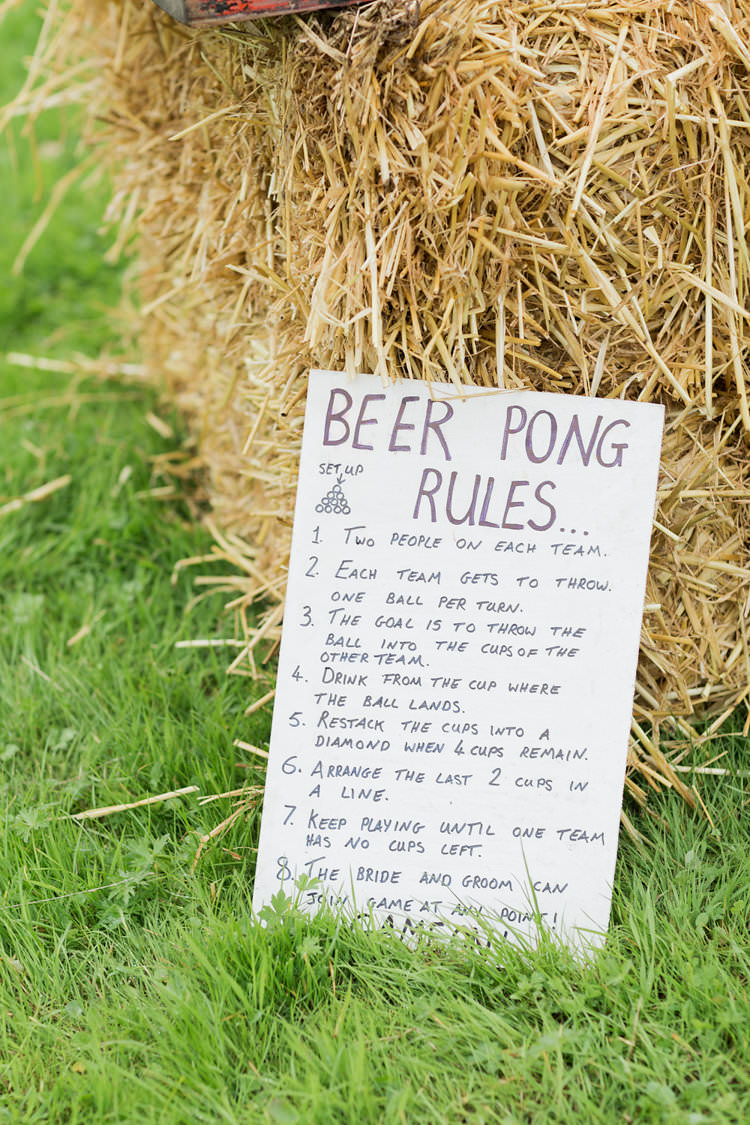 BEER PONG
SET UP
RULES...
1. TWO PEOPLE ON EACH TEAM.
2. EACH TEAM GETS TO THROW.
ONE BALL PER TURN.
3. THE GOAL IS TO THROW THE
BALL INTO THE CUPS OF THE
OTHER TEAM.
4. DRINK FROM THE CUP WHERE
THE BALL LANDS.
5. RESTACK THE CUPS INTO A
DIAMOND WHEN 4 CUPS REMAIN.
6. ARRANGE THE LAST 2 CUPS IN
A LINE.
7. KEEP PLAYING UNTIL ONE TEAM
HAS NO CUPS LEFT.
8. THE BRIDE AND GROOM CAN
JOIN GAME AT ANY POINT!